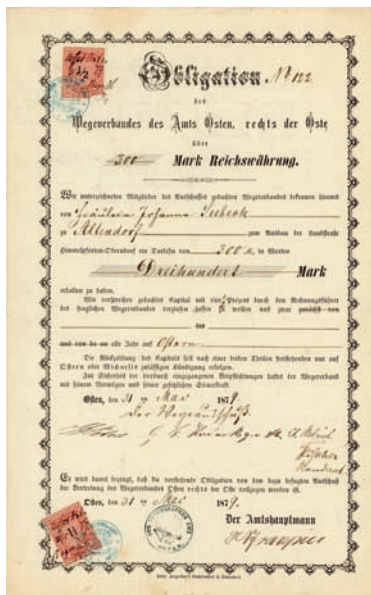 Obligation No 122
des
Wegeverbandes des Amts Osten, rechts der Oste
über
300 Mark Reichswährung.
Wir unterzeichneten Mitglieder des Ausschusses gedachten Wegeverbandes bekennen hiermit
von Fräulein Johanna Seebeck
zu Altendorf zum Ausbau der Landstraße
Himmelpforten-Oberndorf ein Darlehn von 300 M, in Worten
Dreihundert Mark
erhalten zu haben.
Wir versprechen gedachtes Capital mit vier Prozent durch den Rechnungsführer
des fraglichen Wegeverbandes verzinsen lassen zu wollen und zwar zunächst von
das
und von da an alle Jahr auf Ostern
Die Rückzahlung des Capitals soll nach einer beiden Theilen freistehenden nur auf
Ostern oder Michaelis zulässigen Kündigung erfolgen.
Zur Sicherheit der hierdurch eingegangenen Verpflichtungen haftet der Wegeverband
mit seinem Vermögen und seiner gesetzlichen Steuerkraft.
Osten, den 31 Mai 1879.
Der Wegeausschuß.
Es wird damit bezeugt, daß die vorstehende Obligation von dem dazu befugten Ausschuß
der Vertretung des Wegeverbandes Osten rechts der Oste vollzogen worden ist.
Osten, den 31 Mai 1879.
Der Amtshauptmann